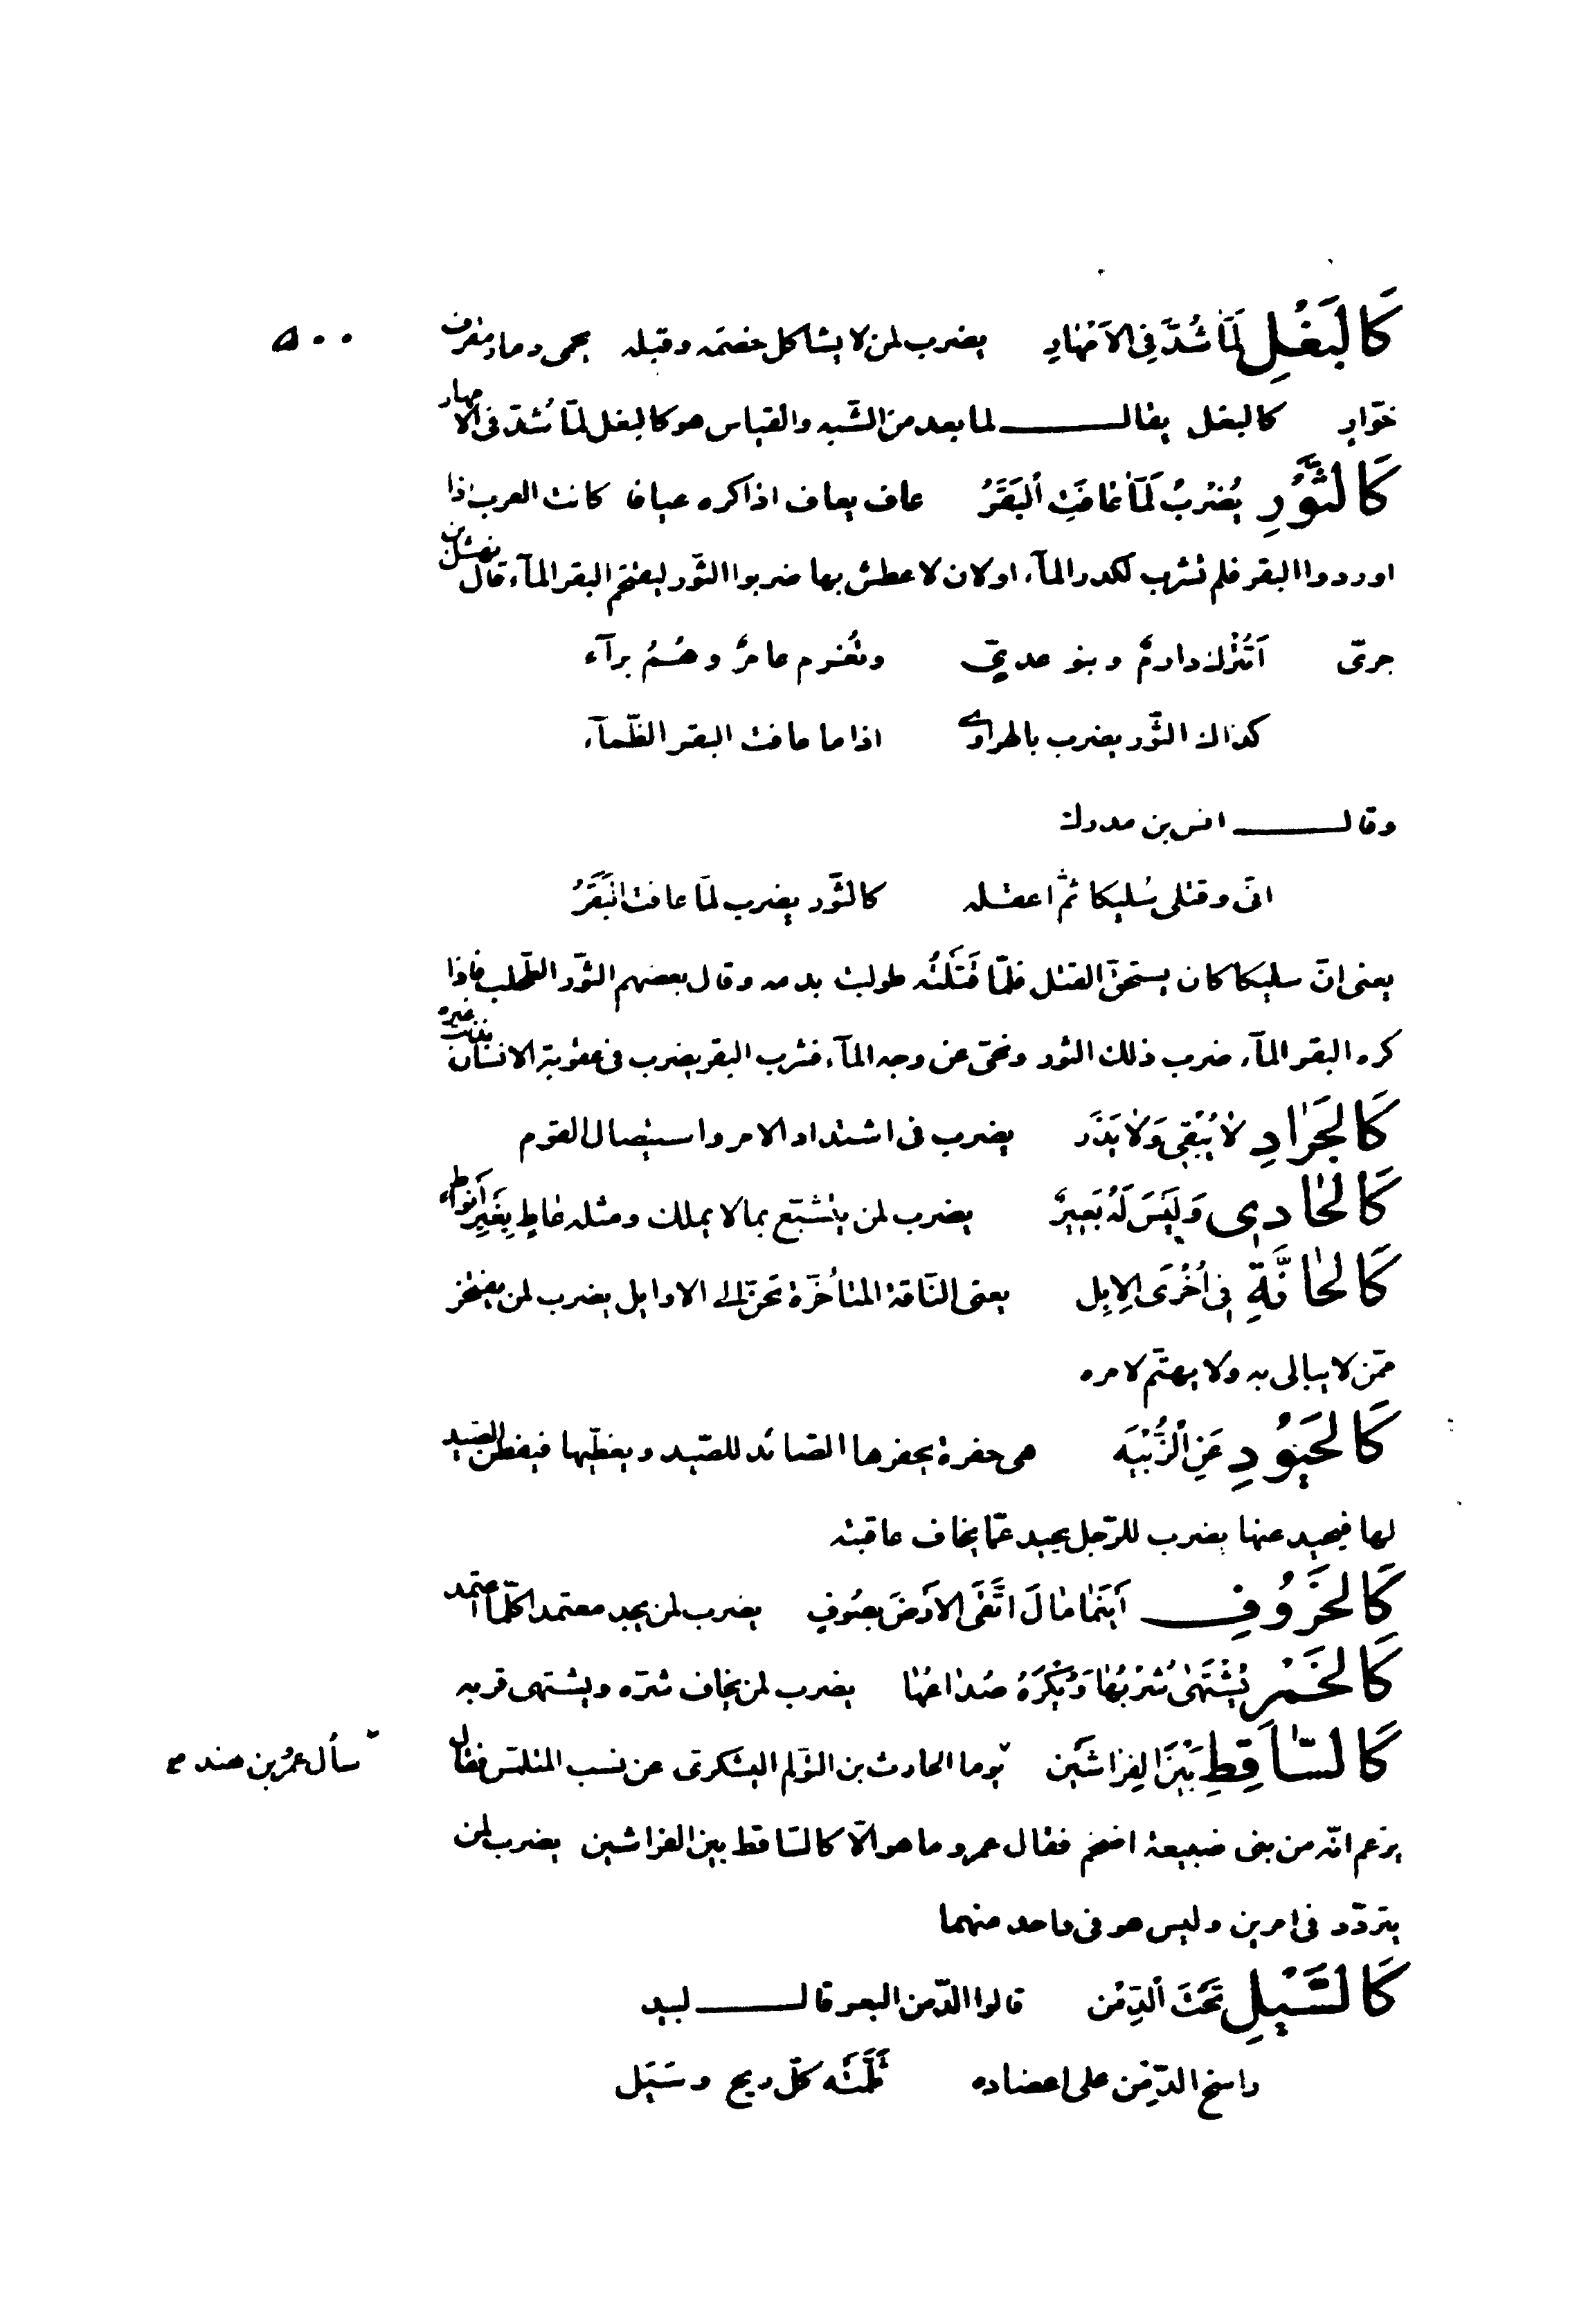 كَالبَغْلِ لَمَّا شُدَّ فِى الاَمْهَادِ يضرب لمن لا يشاكل خصمه وقبله يحمى دمار مقرف
٥٠٠
خوّارٍ كالبغل يقال لما بعد من الشّبه والقياس هو كالبغل لمّا شدّ فى الامهار
كَالثَّوْرِ يُضْرَبُ لَمَّا عَافَتِ اَلبَقَرُ عاف يعاف اذا كره عيافا كانت العرب اذا
اوردوا البقر فلم تشرب لكدر المآء اولان لا عطش بها ضربوا الثّور ليقتحم البقر المآء قال نهشل بن
جرىّ اَتُتْرك دارمٌ وبنو عدىٍّ وتُغرم عامرٌ وهُمُ برآء
كذاك الثّور يضرب بالهراوى اذا ما عافت البقر الظّمآء
وقال انس بن مدرك
انّى وقتلى سُليكا ثمّ اعقله كالثّور يضرب لمّا عافت البَقَرُ
يعنى انّ سليكا كان يستحقّ القتل فلمّا قَتَلْتُه طولبت بدمه وقال بعضهم الثّور الطّحلب فاذا
كره البقر المآء ضرب ذلك الثور ونحّى عن وجه المآء فشرب البقر يضرب فى عقوبة الانسان بذنب غيره
كَالجَرَادِ لاَ يُبْقِى وَلاَ يَذَر يضرب فى اشتداد الامر واستيصال القوم
كَالحَادِى وَلَيْسَ لَهُ بَعِيرٌ يضرب لمن يتشبّع بما لا يملك ومثله عَاطٍ بِغَيرِ اَنواطٍ
كَالحَانَّةِ فِى اُخْرَى الاِبِل يعنى النّاقة المتأخّرة تحنّ الى الاوايل يضرب لمن يفتخر
ممّن لا يبالى به ولا يهتّم لامره
كَالحَيُودِ عَنِ اَلزُّبْيَه هى حفرة يحفرها الصّائد للصّيد ويغطّيها فيفطن الصّيد
لها فيحيد عنها يضرب للرّجل يحيد عمّا يخاف عاقبته
كَالخَرُوفِ اَيْنَمَا مَالَ اتَّقَى الاَرْضَ بِصُوفٍ يضرب لمن يجد معتمدا كلّما اعتمد
كَالخَمْرِ يُشْتَهَى شُرْبُهَا وَيُكْرَهُ صُدَاعُهَا يضرب لمن يخاف شرّه ويشتهى قربه
كَالسَّاقِطِ بَيْنَ الفِرَاشَيْن يوما الحارث بن التؤلم اليشكرىّ عن نسب المتلمّس فقال
سأل عمرُ بن هند
يزعم انّه من بنى ضبيعة اضخم فقال عمرو ما هو الّا كالسّاقط بين الفراشين يضرب لمن
يتردّد فى امرين وليس هو فى واحد منهما
كَالسَّيْلِ تَحْتَ اَلدِّمْن قالوا الدّمن البعر قال لبيد
راسخ الدّمِن على اعضاده ثَلَّمَتْه كلّ ريح وسَبَل